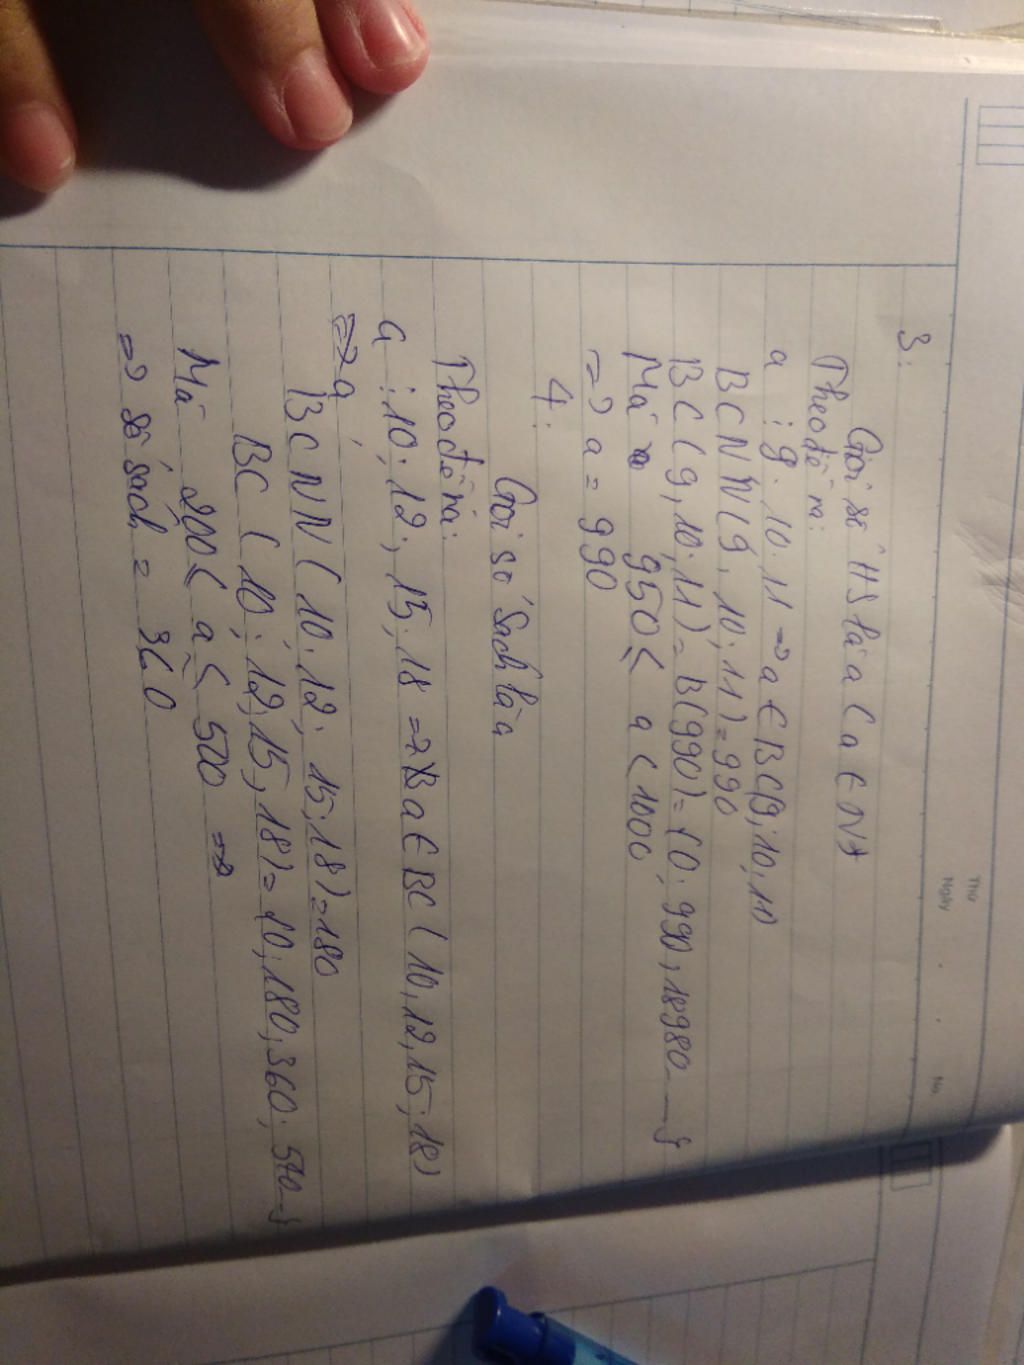 Thứ
Ngày . . No.
3:
Gọi số HS là a ( a ∈ N*
Theo đề ra:
a ⋮ 9; 10; 11 => a ∈ BC(9; 10; 11)
BCNN(9, 10; 11) = 990
BC (9, 10; 11) = B(990) = {0; 990, 18980 ...}
Mà 950 < a < 1000
=> a = 990
4:
Gọi số sách là a
Theo đề ra:
a ⋮ 10; 12; 15; 18 => a ∈ BC ( 10, 12, 15; 18)
=> a
BCNN ( 10; 12; 15; 18) = 180
BC ( 10; 12; 15, 18) = {0; 180, 360; 540 ...}
Mà 200 ≤ a ≤ 500 =>
=> số sách = 360